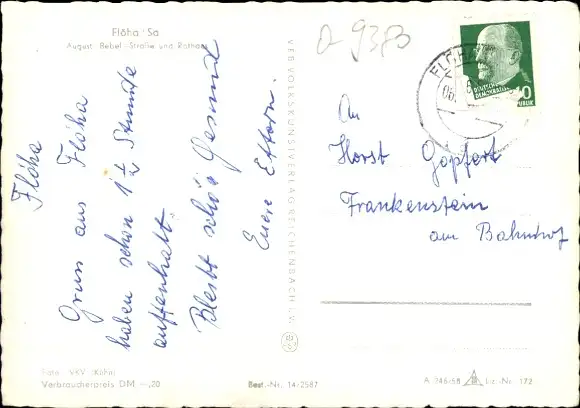 Flöha Sa
August Bebel Straße und Rathaus
Flöha
Gruss aus Flöha
haben schon 1 1/2 Stunde
auffenhalt.
Bleibt schö Gesund
Euere Eltern.
VEB VOLKSKUNSTVERLAG REICHENBACH i.V.
a 9383
FLÖHA
DEUTSCHE
DEMOKRATISCHE
REPUBLIK
10
An
Horst Göpfert
Frankenstein
am Bahnhof
Foto: VKV (Kühn)
Verbraucherpreis DM –,20
Best.-Nr. 14-2587
A 346/58
Liz.-Nr. 172